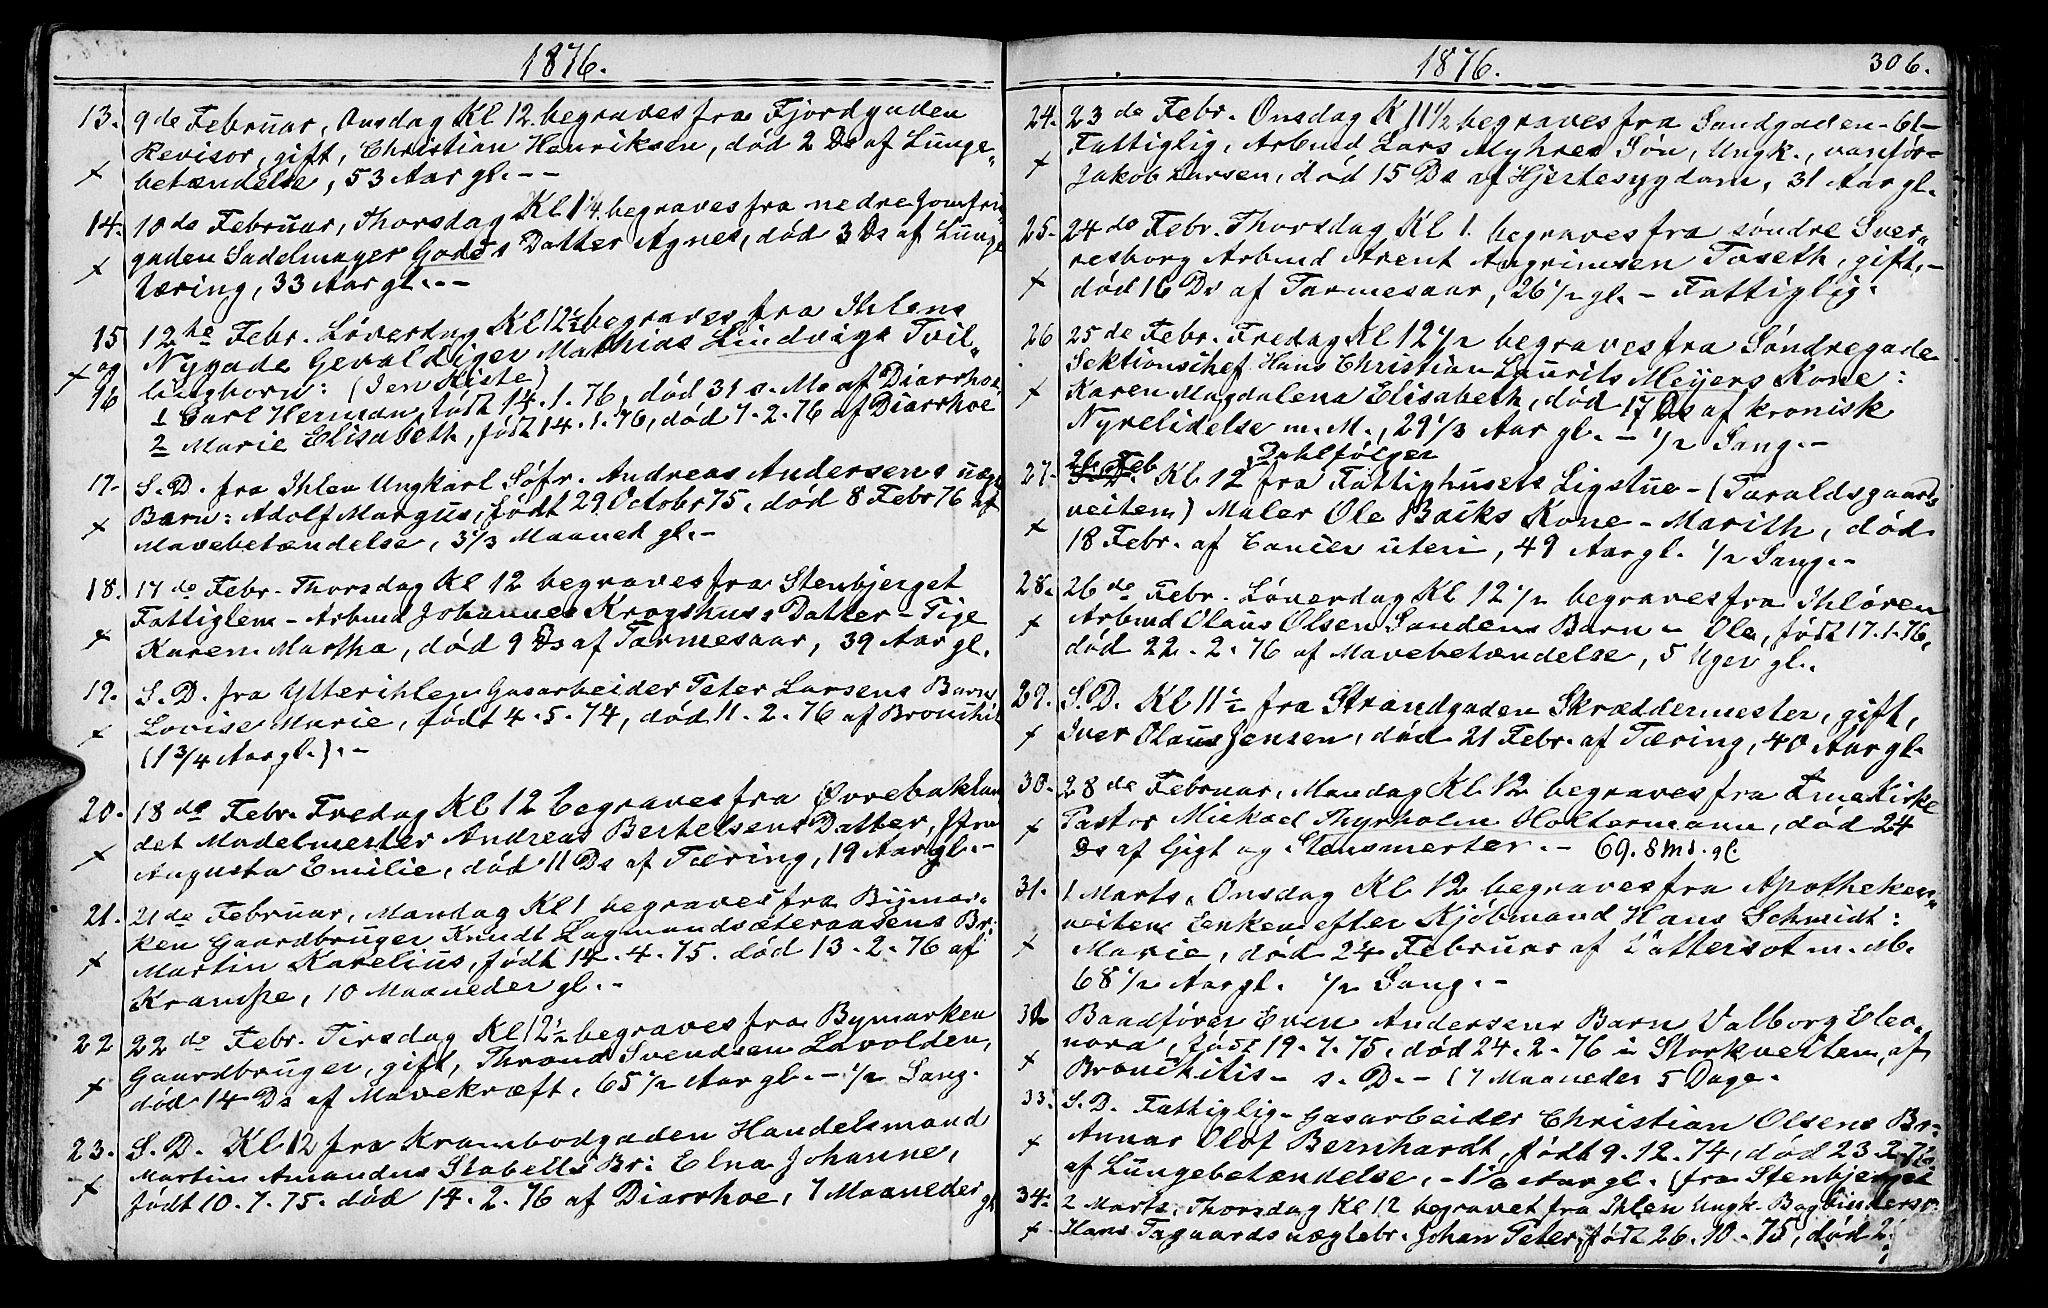 1876.
13. 9de Februar, Onsdag Kl 12 begraves fra Fjordgaden
Revisor, gift, Christian Henriksen, død 2 Ds af Lunge„
x betændelse, 53 Aar gl. - -
14. 10de Februar, Thorsdag Kl 1 1/4 begraves fra nedre Jomfru
gaden Sadelmager Godes Datter Agnes, død 3 Ds af Lunge
x tæring, 33 Aar gl. . -
15 12te Febr. Løverdag Kl 12½ begraves fra Ihlens
x og Nygade Gevaldiger Mathias Lindvigs Tvil„
lingborn: (I en Kiste)
16 1 Carl Herman, født 14.1.76, død 31 s. Ms af Diarrhoe
2 Marie Elisabeth, født 14.1.76, død 7-2-76 af Diarrhoe
17. S. D. fra Ihlen Ungkarl Søfr. Andreas Andersens uægt
Barn: Adolf Margus, født 29 Octobr 75, død 8 Febr 76 af
x Mavebetændelse, 3 1/3 Maaned gl. -
18. 17de Febr. Thorsdag Kl 12 begraves fra Stenbjerget
Fattiglem - Arbmd Johannes Krogshus's Datter - Pige
x Karen Martha, død 9 Ds af Tarmesaar, 39 Aar gl.
19. S. D. fra Ytterihlen Gasarbeider Peter Larsens Barn
x Lovise Marie, født 4-5-74, død 11-2-76 af Bronchit
(1 3/4 Aar gl.). -
20. 18de Febr. Fredag Kl 12 begraves fra Øvrebaklan
det Madelmester Andreas Bertelsens Datter, Jfru
x Augusta Emilie, død 11 Ds af Tæring, 19 Aar gl. -
21. 21de Februar, Mandag Kl 1 begraves fra Bymar„
ken Gaardbruger Knudt Lagmandsæteraasens Br:
x Martin Karelius, født 14.4.75. død 13-2-76 af
Krampe, 10 Maaneder gl. -
22 22de Febr. Tirsdag Kl 12½ begraves fra Bymarken
Gaardbruger, gift, Thrond Svendsen Lavolden,
x død 14 Ds af Mavekræft, 65 1/2 Aar gl. - 1/2 Sang.
23. S. D. Kl 12 fra Krambodgaden Handelsmand
Martin Amandus Stabells Br: Elna Johanne,
x født 10.7.75. død 14.2.76 af Diarrhoe, 7 Maaneder gl
1876. 306.
24. 23de Febr. Onsdag K 11 1/2 begraves fra Sandgaden - 61 -
Fattiglig, Arbmd Lars Myhres Søn, Ungk., vanfør -
x Jakob Larsen, død 15 Ds af Hjertesygdom, 31 Aar gl.
25. 24de Febr. Thorsdag Kl 1. begraves fra søndre Sver„
resborg Arbmd Arent Angrimsen Toseth, gift, -
x død 16 Ds af Tarmesaar, 26 1/2 gl. - Fattiglig.
26 25de Febr. Fredag Kl 12 1/2 begraves fra Søndregade
Sektionschef Hans Christian Laurits Meyers Kone:
x Karen Magdalena Elisabeth, død 17 Ds af kronisk
Nyrelidelse m. M., 29 1/3 Aar gl. - 1/2 Sang. -
26 Feb
27. S. D. Kl 12 fra Fattighusets Ligstue - (Taraldsgaards
veiten) Maler Ole Baiks Kone - Marith, død
x 18 Febr. af Cancer uteri, 49 Aar gl. 1/2 Sang. -
28. 26de Febr. Løverdag Kl 12 1/2 begraves fra Ihløren
x Arbmd Olaus Olsen Sandens Barn - Ole, født 17.1.76,
død 22-2-76 af Mavebetændelse, 5 Uger gl..
29. S. D. Kl 11½ fra Strandgaden Skræddermester, gift,
x Iver Olaus Jensen, død 21 Febr. af Tæring, 40 Aar gl.
30. 28de Februar, Mandag Kl 12 begraves fra Frue Kirke
x Pastor Michael Thyrholm Holtermann, død 24
Ds af Gigt og Stensmerter. - 69. 8 Md. gl
31. 1 Marts, Onsdag Kl 12 begraves fra Apotheker„
veiten Enken efter Kjøbmand Hans Schmidt:
x Marie, død 24 Februar af Vattersot m. M.
68 1/2 Aar gl. 1/2 Sang. -
32 Baadfører Even Andersens Barn Valborg Eleo„
nora, født 19-7-75, død 24-2-76 i Storkveiten, af
x Bronchitis - s. D. - (7 Maaneder 5 Dage.
33. S. D. Fattiglig - Gasarbeider Christian Olsens Br:
x Annar Olof Bernhardt, født 9.12.74, død 23.2.76
af Lungebetændelse, - 1 1/6 Aar gl. (fra Stenbjerget
34. 2 Marts, Thorsdag Kl 12 begravet fra Ihlen Ungk. Bogbindersv.
x Hans Tagaards uægtebr. Johan Peter, født 26.10.75, død 2